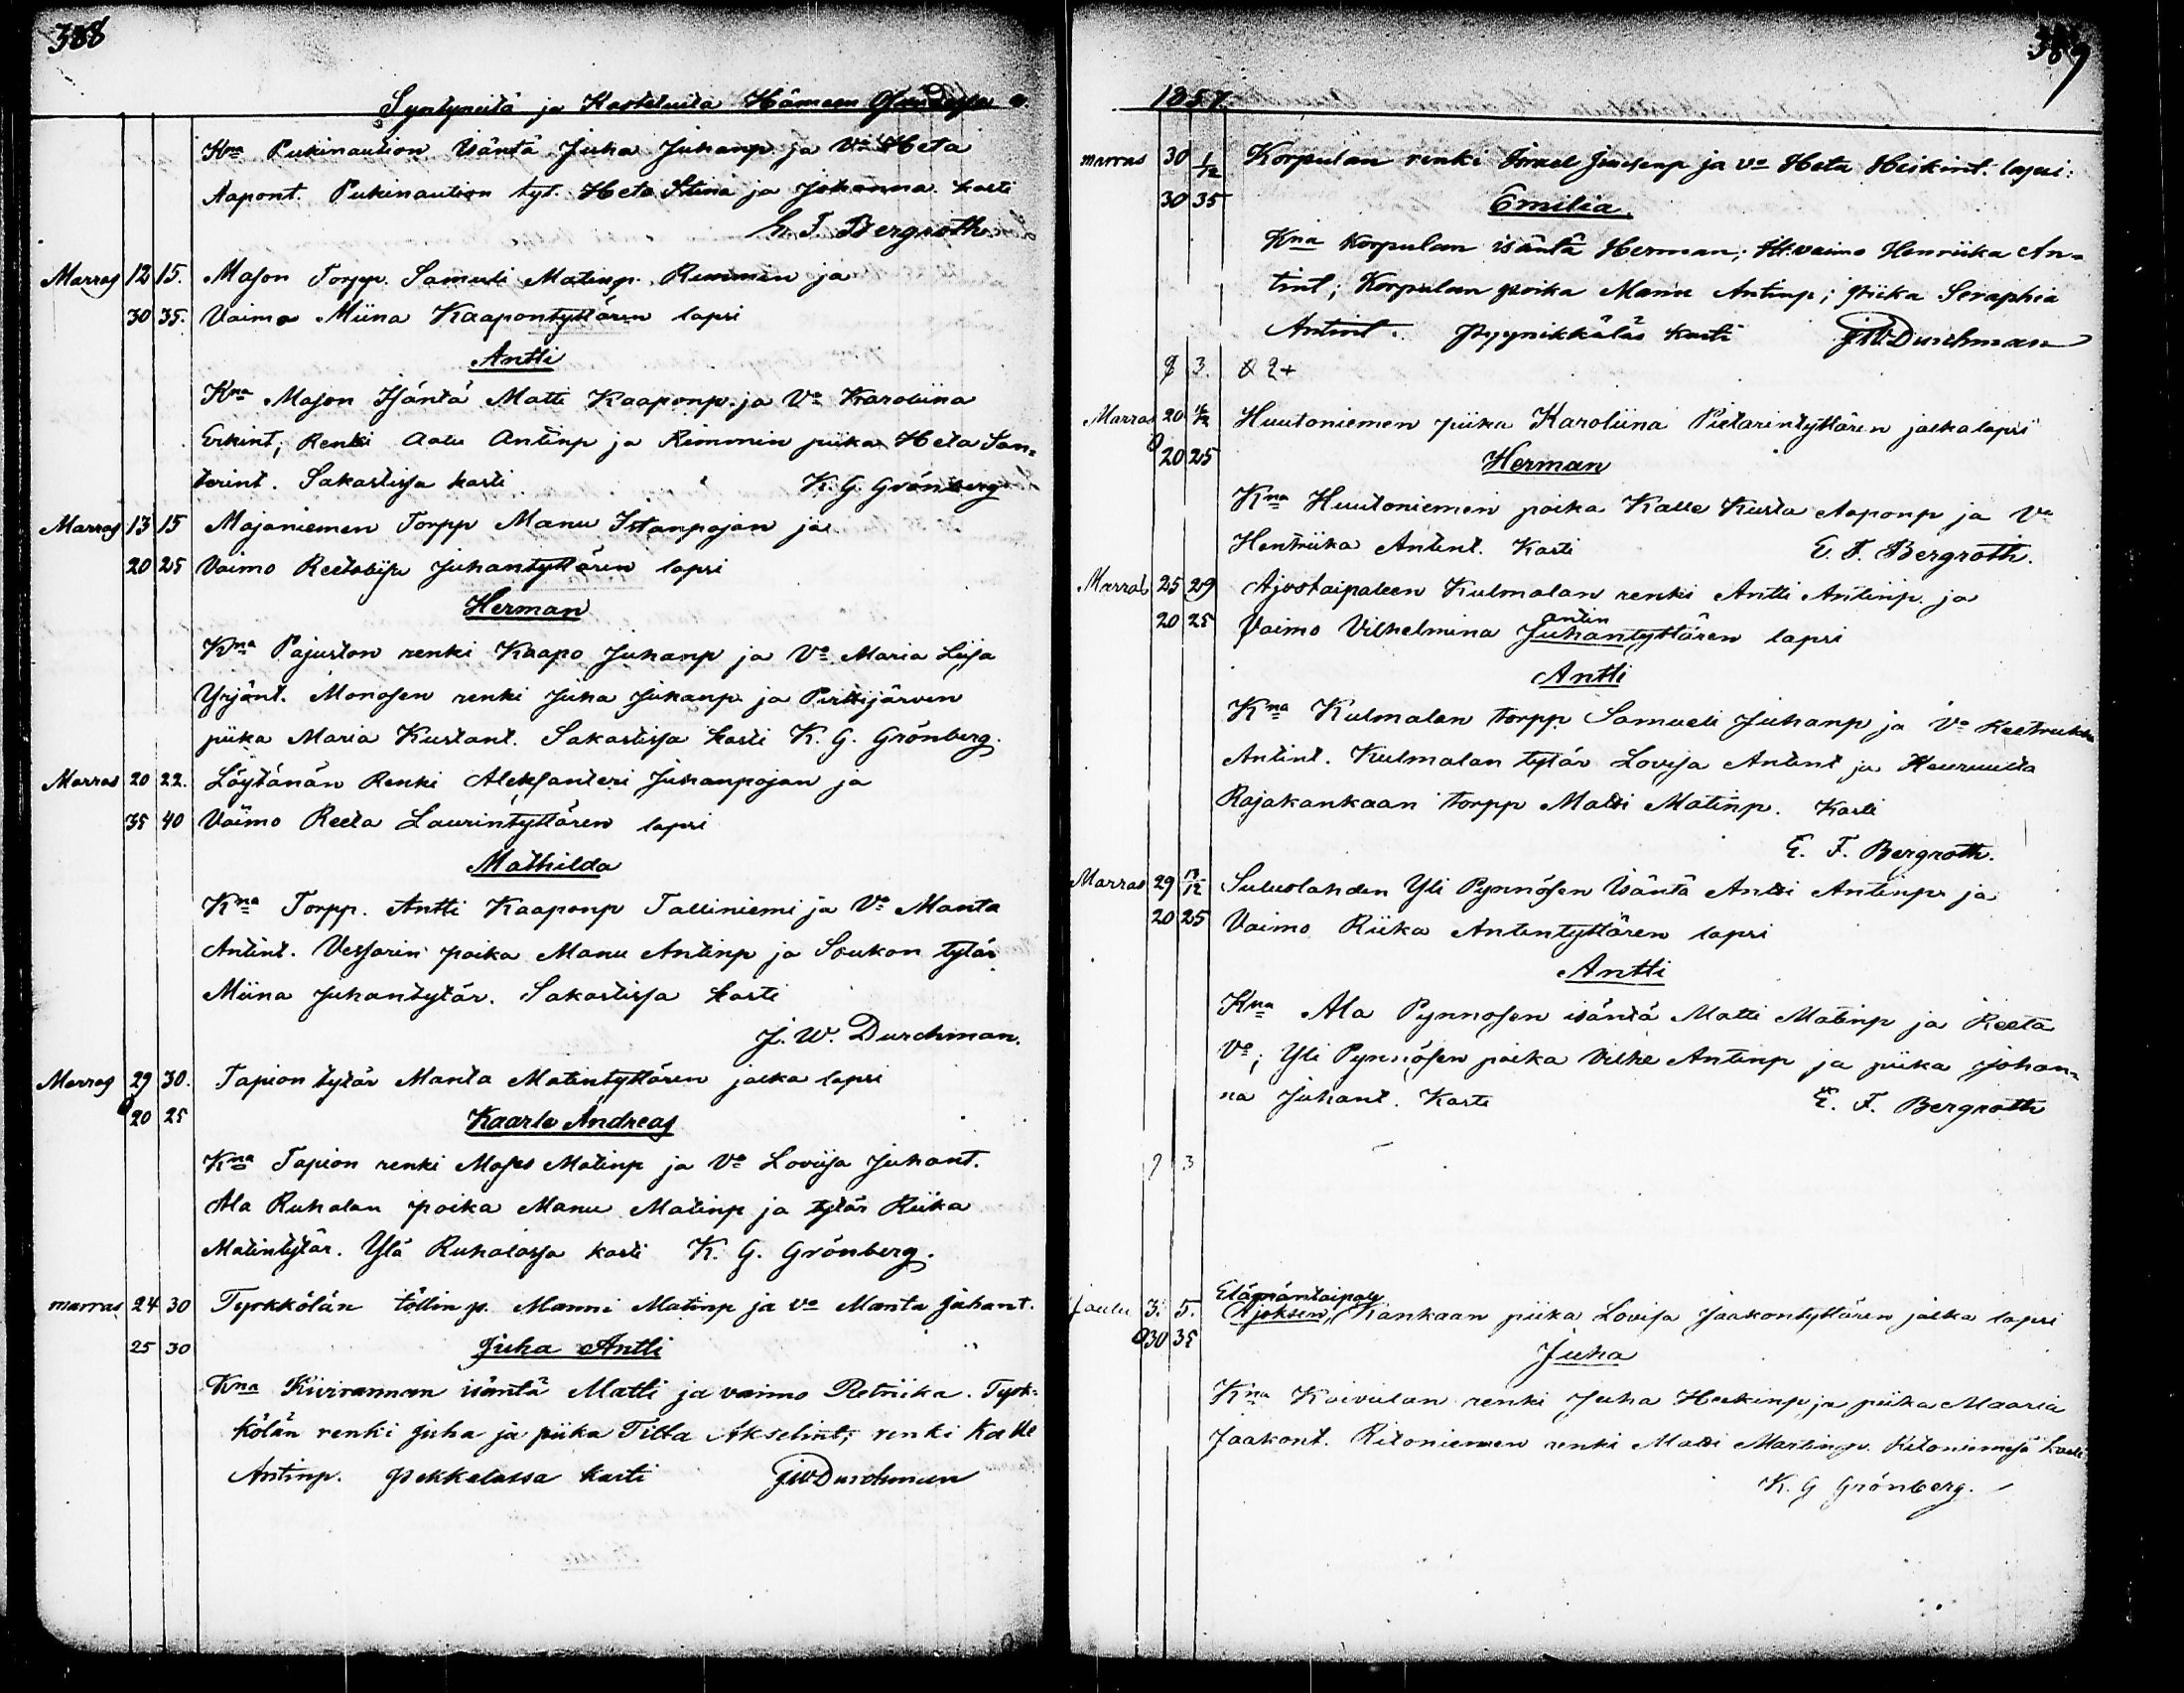 388
Syntyneitä ja Kasteluita Hämeen
Kna Pukinaution Isäntä Juha Juhanp ja Va Heta
Aapont. Pukinaution tyt. Heta Stina ja Johanna kasti
E. F. Bergroth.
Marras 12 15. Mason Torpp. Samuli Matinp. Rimmin ja
30 35. Vaimo Miina Kaapontyttären lapsi
Antti
Kna Mason Isäntä Matti Kaaponp. ja Va Karoliina
Erkint, Renki Aatu Antinp ja Rimmin piika Heta San=
terint. Sakastissa kasti K. G. Grönberg
Marras 13 15 Majaniemen Torpp Manu Istanpojan ja
20 25 Vaimo Reetaliisa Juhantyttären lapsi
Herman
Kna Pajuston renki Kaapo Juhanp ja Va Maria Liisa
Yrjönt. Monosen renki Juha Juhanp ja Pirttijärven
piika Maria Kustant. Sakastissa kasti K. G. Grönberg.
Marras 20 22. Löytänän Renki Aleksanteri Juhanpojan ja
35 40 Vaimo Reeta Laurintyttären lapsi
Mathilda
Kna Torpp. Antti Kaaponp Talliniemi ja Va Manta
Antint. Vessarin poika Manu Antinp ja Soukon tytär
Miina Juhantytär. Sakastissa kasti
J. W. Durchman.
Marras 29 30. Tapion tytär Manta Matintyttären jalka lapsi
20 25 Kaarle Andreas
Kna Tapion renki Moses Matinp ja Va Loviisa Juhant.
Ala Ruhalan poika Manu Matinp ja tytär Riika
Matintytär. Ylä Ruhalassa kasti K. G. Grönberg.
marras 24 30 Tyrkkölän töllin p. Manni Matinp ja va Manta Juhant.
25 30 Juha Antti
Kna Kiviranman isäntä Matti ja vaimo Retriika. Tyrk=
kölän renki Juha ja piika Tilta Akselint; renki Kalle
Antinp. Pekkalassa kasti JWDurchman
389
1857.
marras 30 1/12 Korpulan renki Israel ja va Heta Heikint. lapsi:
30 35 Emilia.
Kna Korpulan isäntä Herman; vaimo Henriika An=
tint; Korpulan poika Manu Antinp; piika Seraphia
Antint. Pyynikkäläs kasti JWDurchman
9 3. & 2+
Marras 20 Huutoniemen piika Karoliina Pietarintyttären jalkalapsi
20 25 Herman
Kna Huutoniemen poika Kalle Kusta Aaponp ja Va
Hentriika Antint. Kasti E. F. Bergroth.
Marras 25 29 Ajostaipaleen Kulmalan renki Antti Antinp. ja
antin
20 25 Vaimo Vilhelmina Juhantyttären lapsi
Antti
Kna Kulmalan torpp Samueli Juhanp ja Va
Antint. Kulmalan tytär Lovisa Antint ja
Rajakankaan torpp Matti Matinp. Kasti
E. F. Bergroth.
Marras 29 13/12 Suluslahden Yli Pynnösen Isäntä Antti Antinp ja
20 25 Vaimo Riika Antintyttären lapsi
Antti
Kna Ala Pynnosen isäntä Matti Matinp ja Reeta
Va; Yli Pynnösen poika Vilhe Antinp ja piika Johan=
na Juhant. Kasti E. F. Bergroth
9 3
Elämäntaipale
Joulu 3. 5. Ajoksen, Kankaan piika Lovisa Jaakontyttären jalka lapsi
30 35 Juha
Kna Koivulan renki Juha Heikinp ja piika Maaria
Jaakont. Ritoniemen renki Matti Martinp. Ritoniemesä kasti
K. G Grönberg.